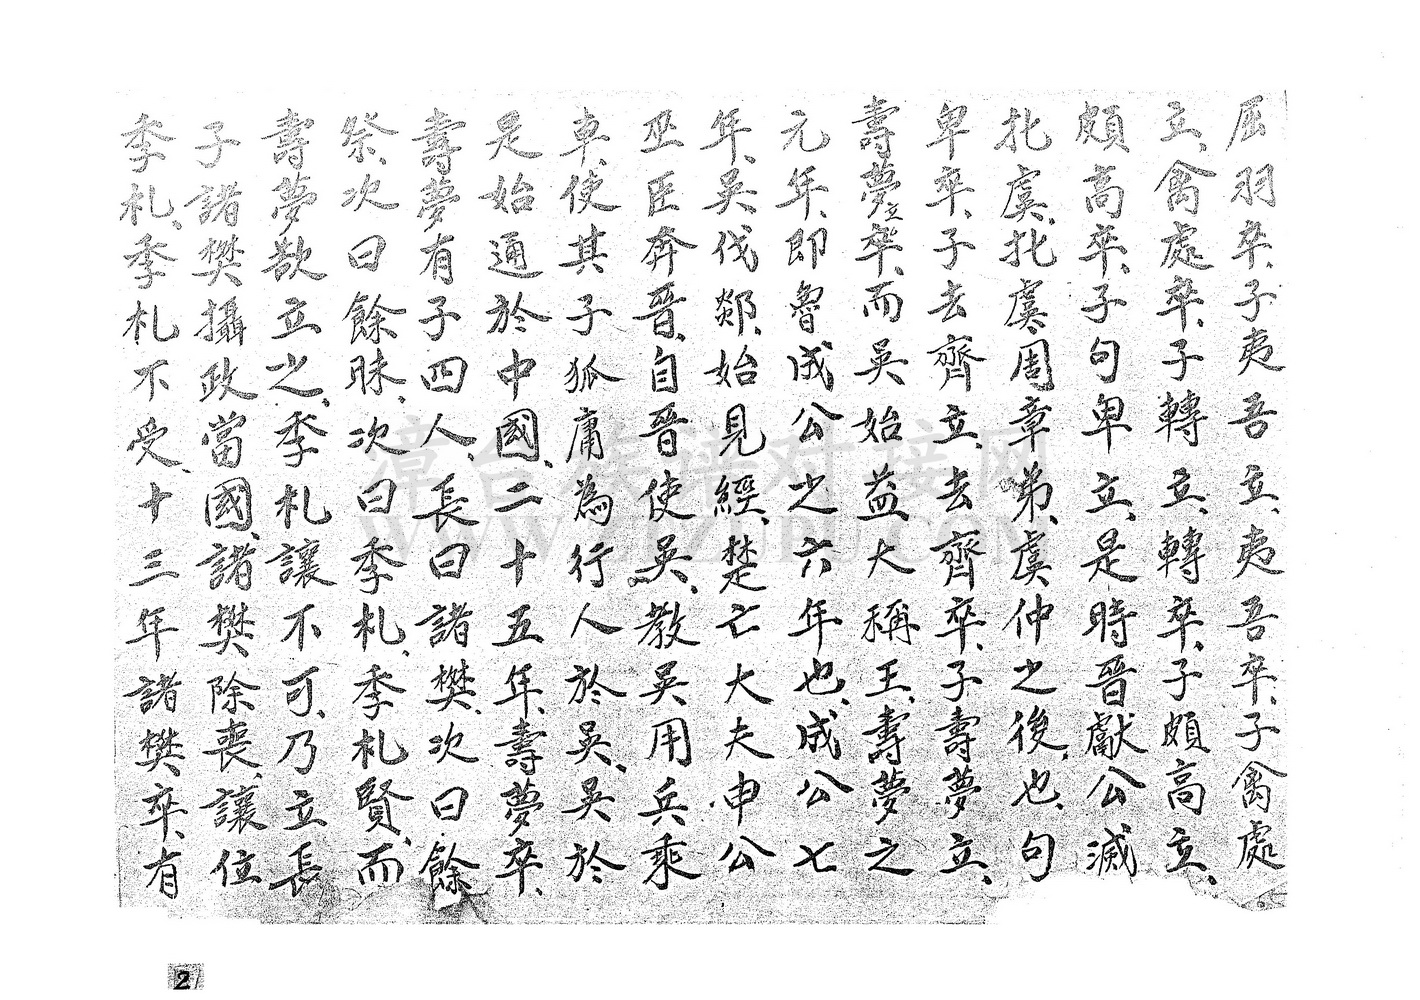 屈羽卒、子夷吾立、夷吾卒、子禽處
立、禽處卒、子轉立、轉卒、子頗高立、
頗高卒、子句卑立、是時晉獻公滅
北虞、北虞周章弟、虞仲之後也、句
卑卒、子去齊立、去齊卒、子壽夢立、
壽夢立卒、而吳始益大稱王、壽夢之
元年、即魯成公之六年也、成公七
年、吳伐郯、始見經、楚亡大夫申公
巫臣奔晉、自晉使吳、教吳用兵乘
車、使其子狐庸為行人於吳、吳於
是始通於中國、二十五年、壽夢卒、
壽夢有子四人、長曰諸樊、次曰餘
祭、次曰餘眛、次曰季札、季札賢、而
壽夢欲立之、季札讓不可、乃立長
子諸樊攝政當國、諸樊除喪、讓位
季札、季札不受、十三年諸樊卒、有
漳台族譜對接网
WWW.ZTZUPU.COM
2